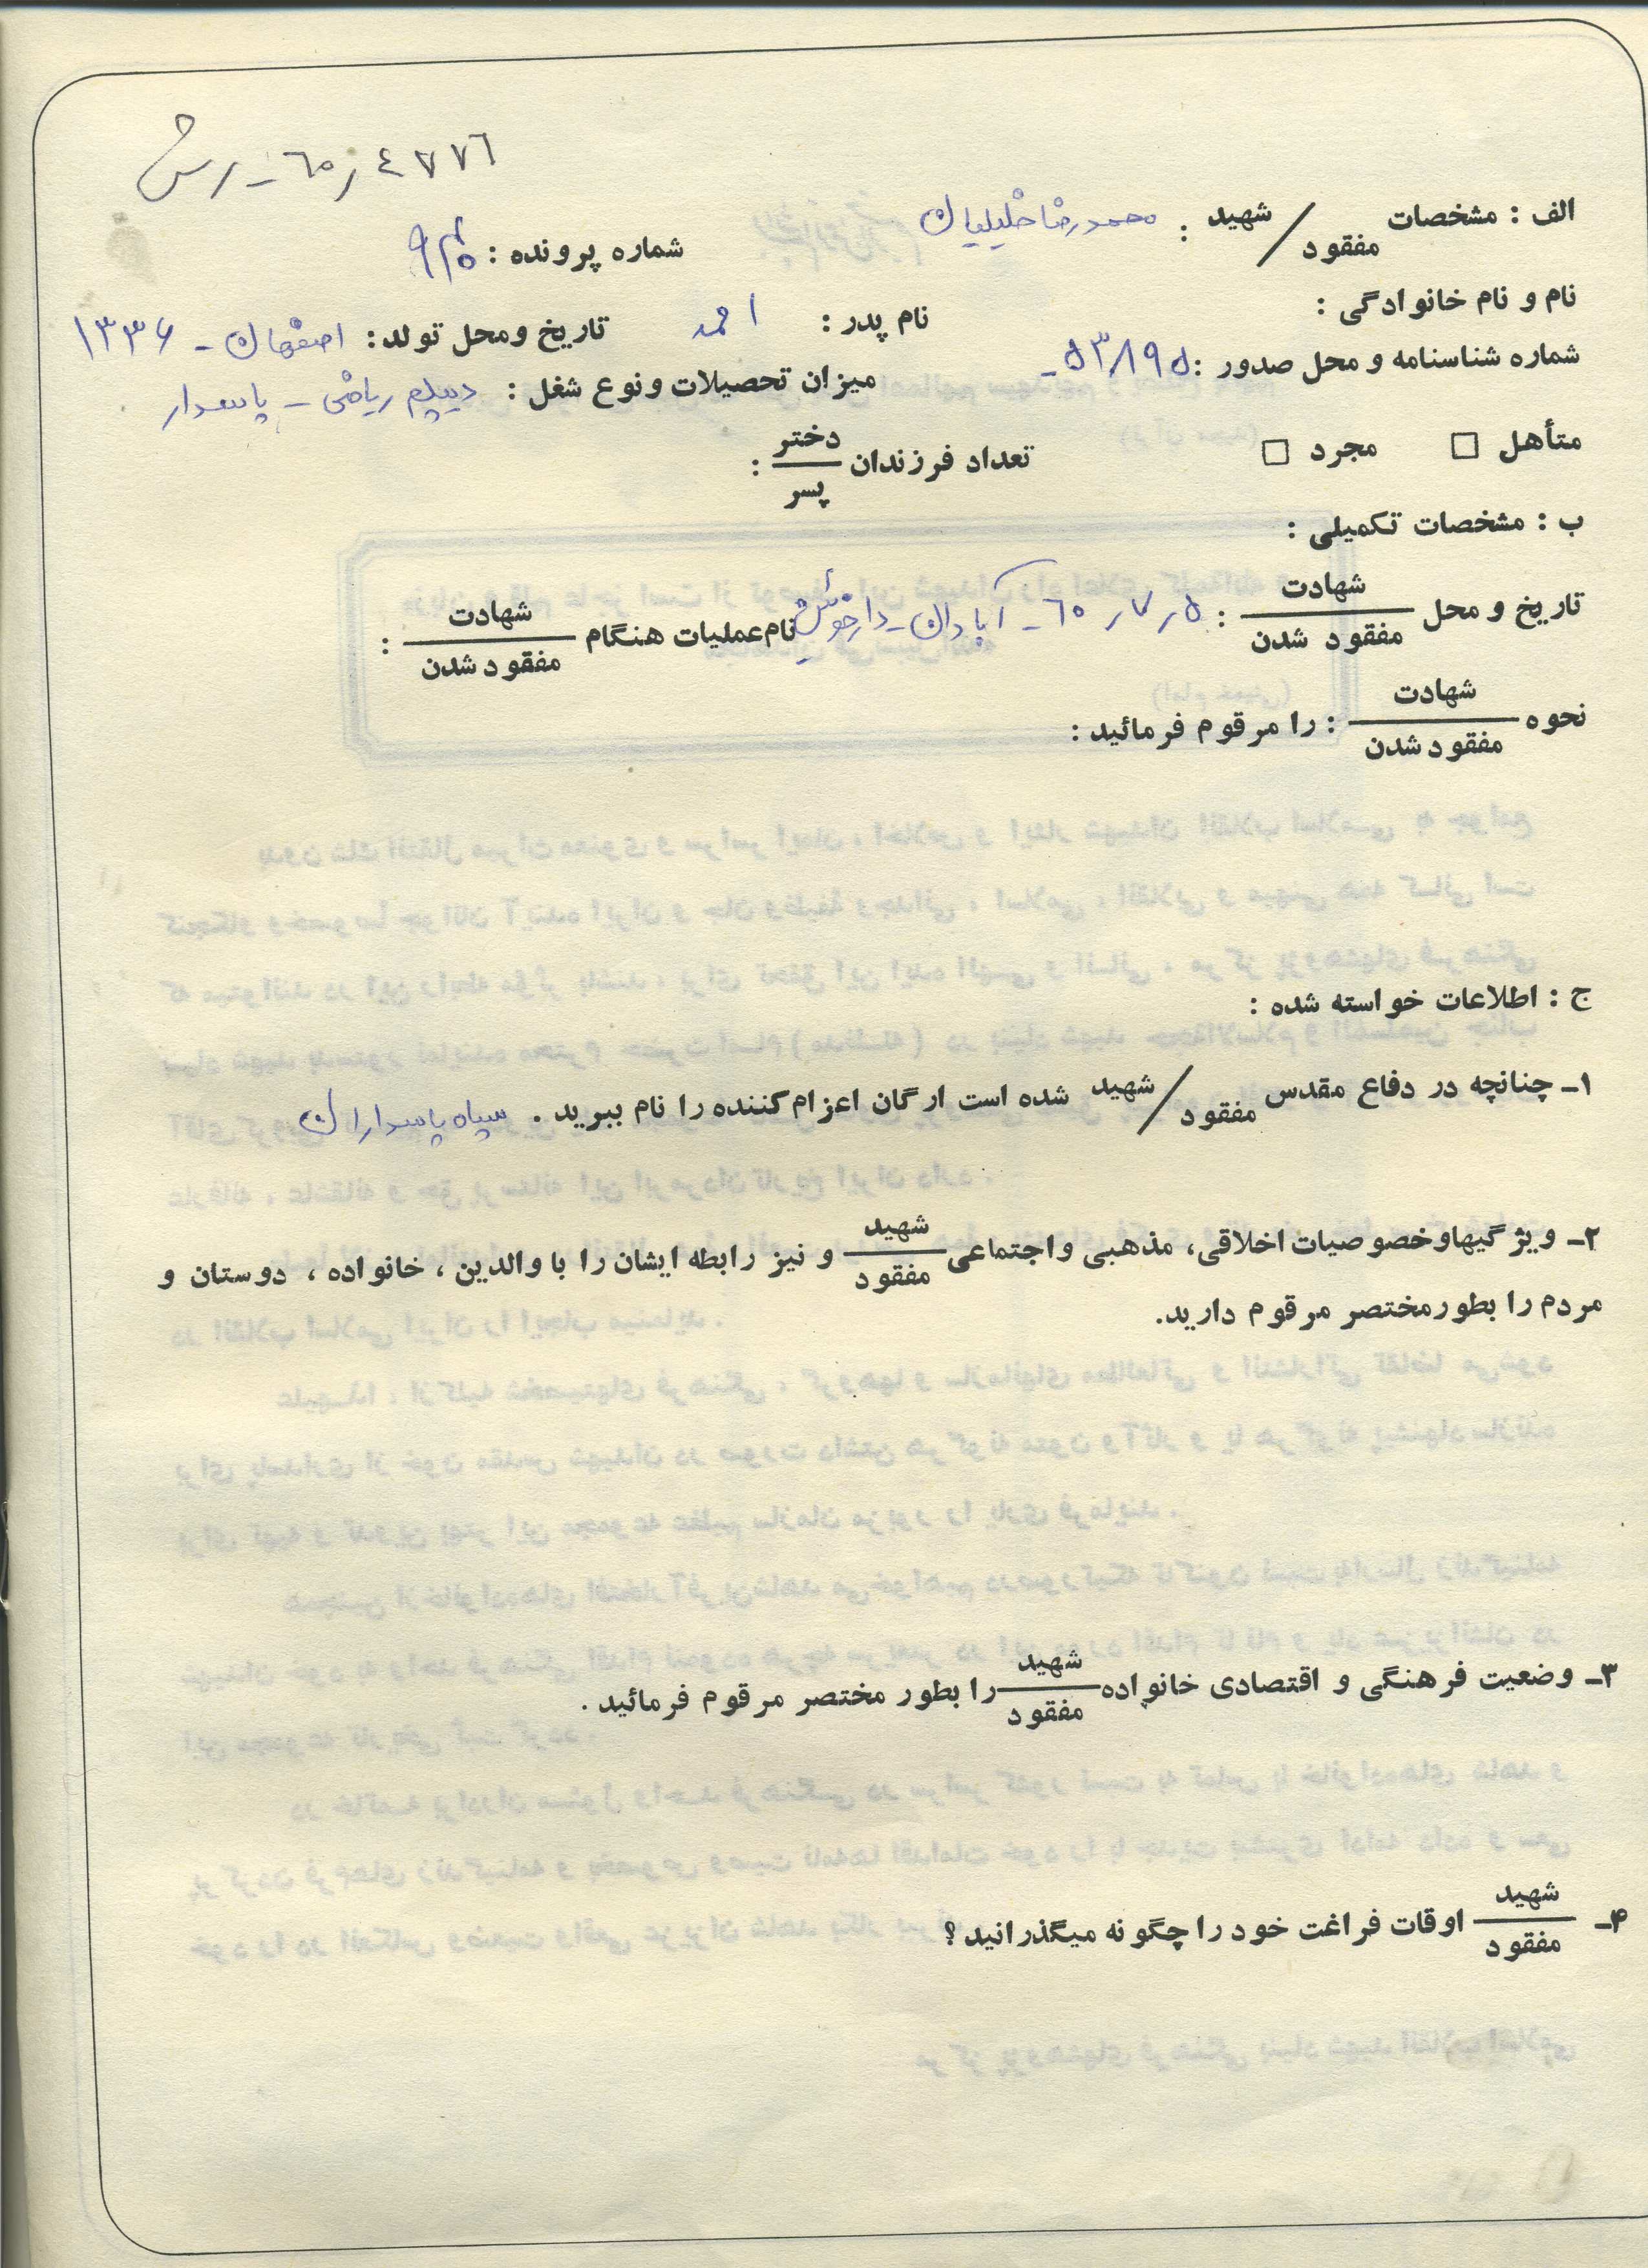 ٤٧٧٦ ر ٦٠ - ر ش
الف : مشخصات شهید / مفقود : محمدرضا خلیلیان
شماره پرونده :
نام و نام خانوادگی :
نام پدر : احمد
تاریخ ومحل تولد : اصفهان - ۱۳۳۶
شماره شناسنامه و محل صدور :
میزان تحصیلات و نوع شغل : دیپلم ریاضی - پاسدار
متأهل □ مجرد □ تعداد فرزندان دختر / پسر :
ب : مشخصات تکمیلی :
تاریخ و محل شهادت / مفقود شدن : ۵ ر ۷ ر ٦٠ - آبادان - دارخوئین نام عملیات هنگام شهادت / مفقود شدن :
نحوه شهادت / مفقود شدن : را مرقوم فرمائید :
ج : اطلاعات خواسته شده :
۱ـ چنانچه در دفاع مقدس شهید / مفقود شده است ارگان اعزام کننده را نام ببرید . سپاه پاسداران
۲ـ ویژگیها وخصوصیات اخلاقی، مذهبی و اجتماعی شهید / مفقود و نیز رابطه ایشان را با والدین ، خانواده ، دوستان و
مردم را بطور مختصر مرقوم دارید.
۳ـ وضعیت فرهنگی و اقتصادی خانواده شهید / مفقود را بطور مختصر مرقوم فرمائید .
۴ـ شهید / مفقود اوقات فراغت خود را چگونه میگذرانید ؟